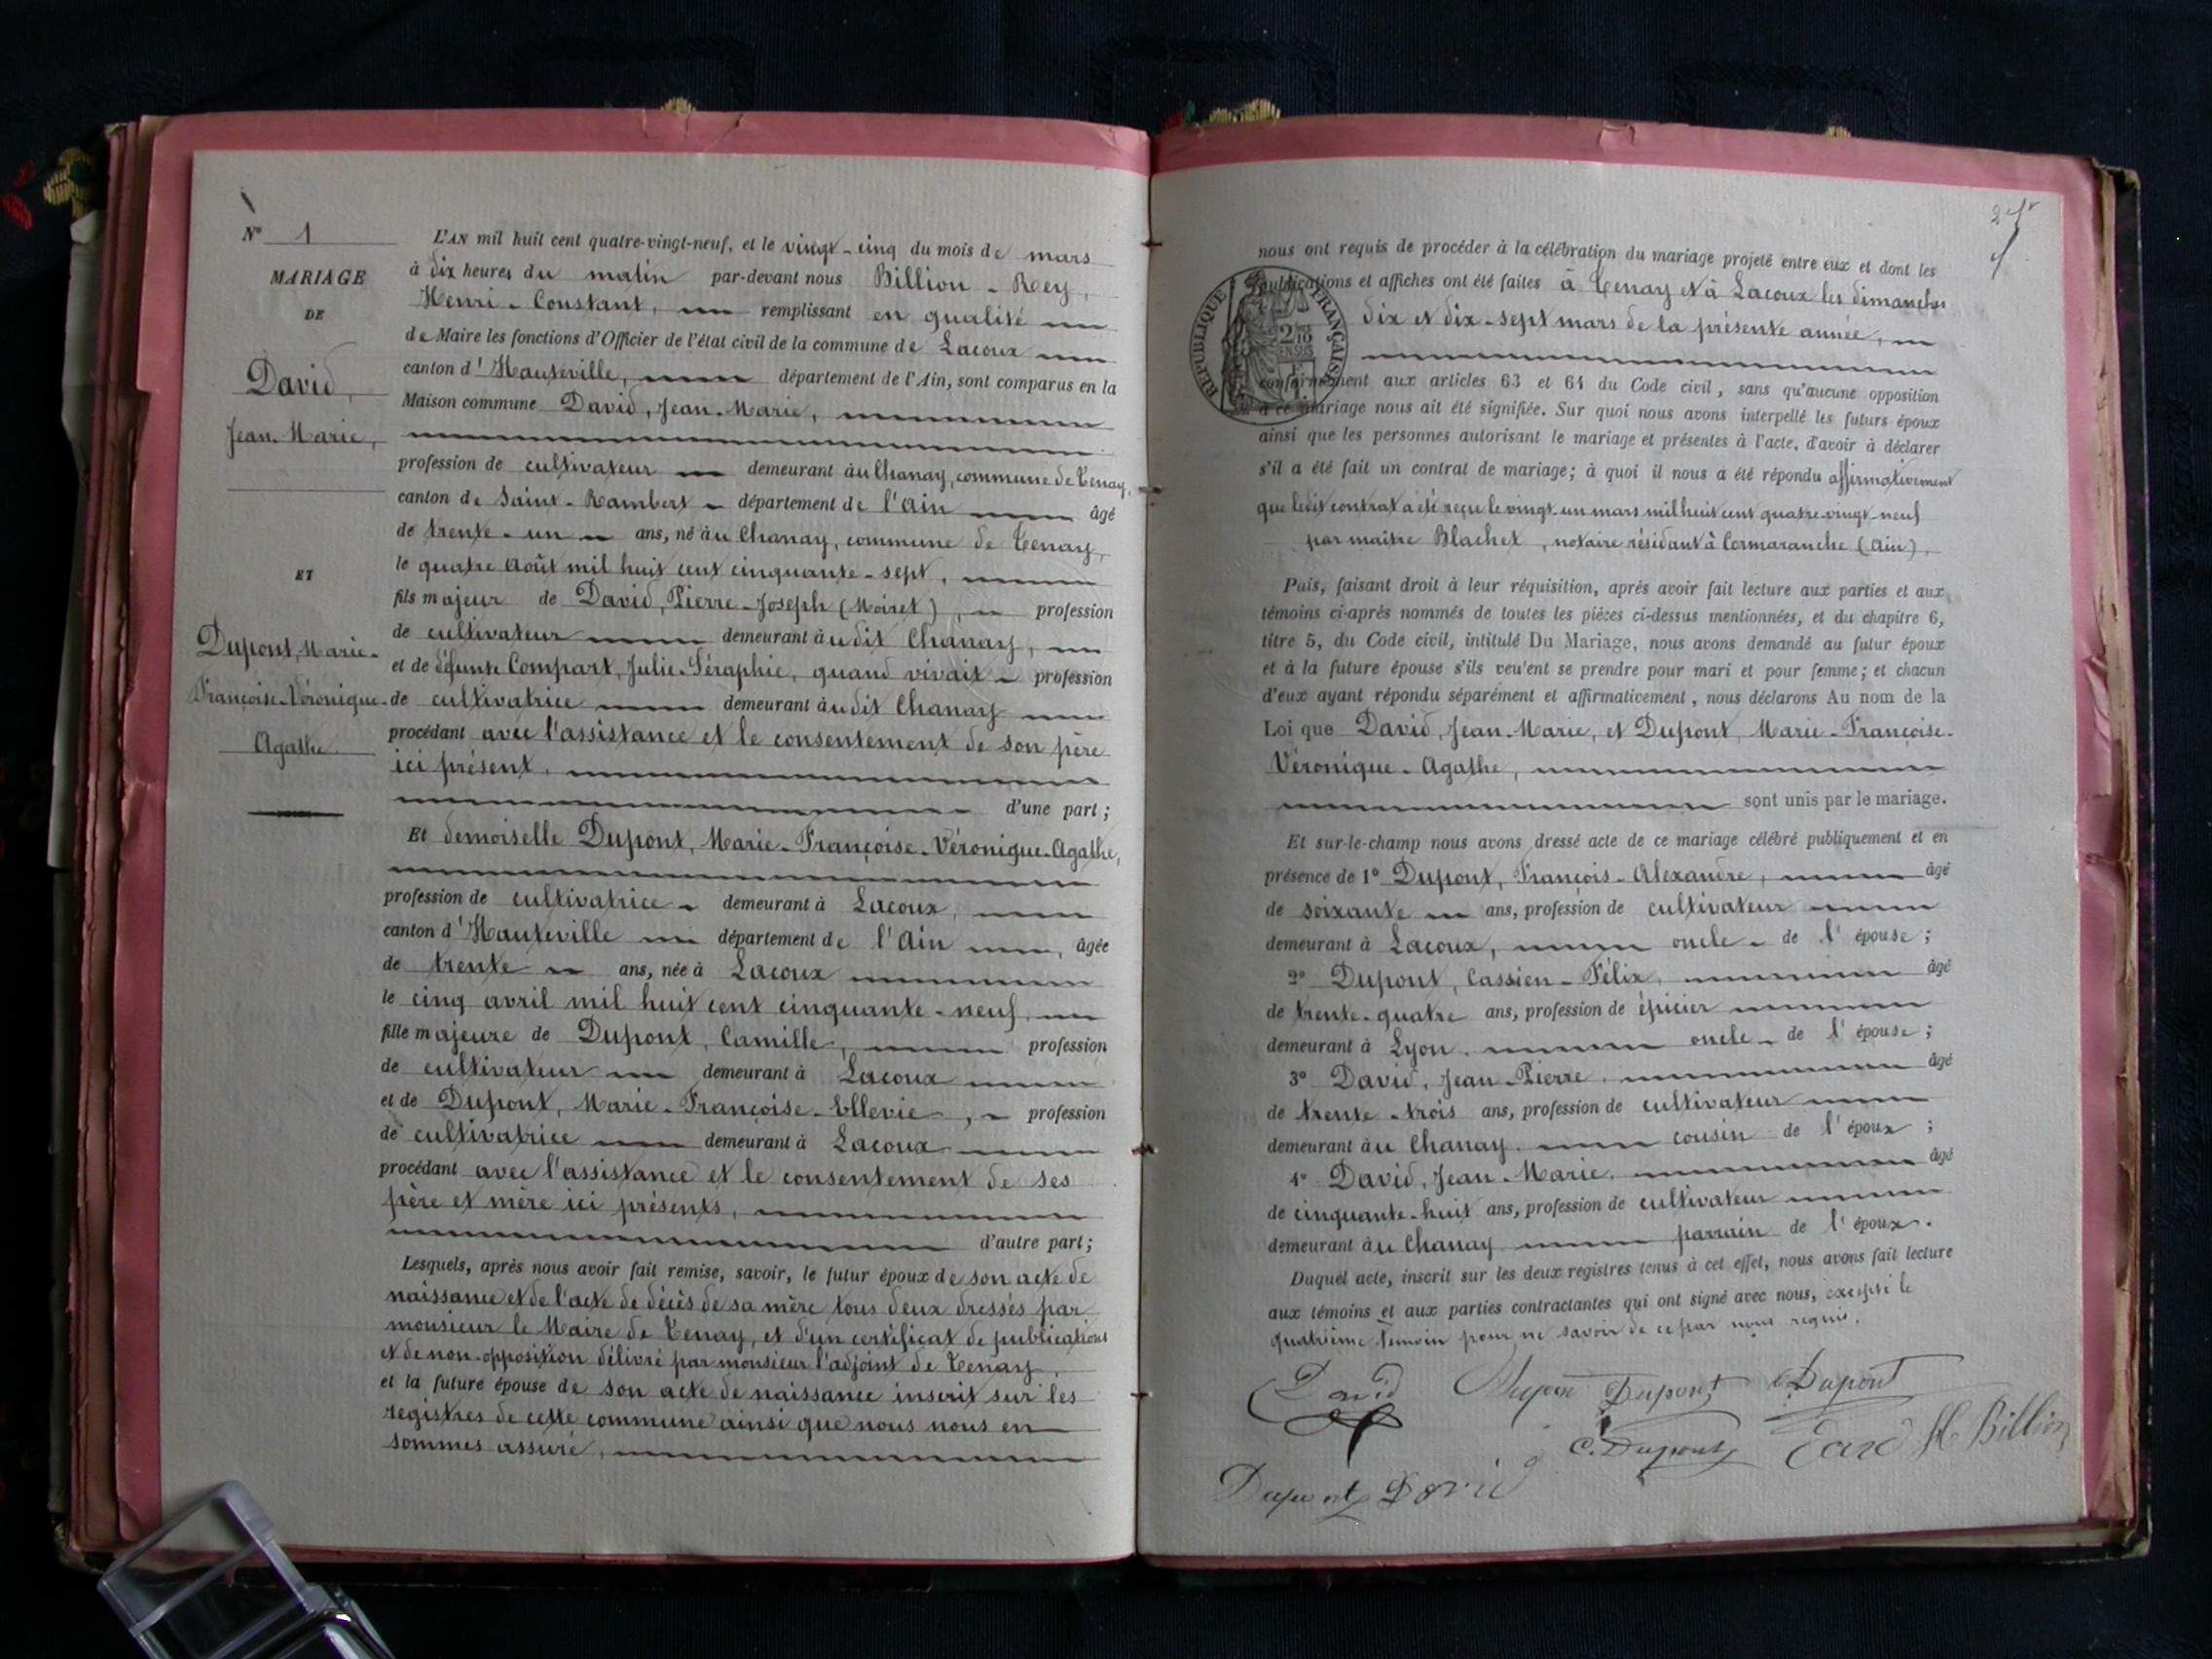 N° 1
MARIAGE
DE
David,
Jean-Marie,
ET
Dupont, Marie-
Françoise-Véronique-
Agathe
L'AN mil huit cent quatre-vingt-neuf, et le vingt-cinq du mois de mars
à dix heures du matin par-devant nous Billion-Rey,
Henri-Constant, remplissant en qualité
de Maire les fonctions d'Officier de l'état civil de la commune de Lacoux
canton d'Hauteville, département de l'Ain, sont comparus en la
Maison commune David, Jean-Marie,
profession de cultivateur demeurant au Chanay, commune de Tenay,
canton de Saint-Rambert département de l'Ain âgé
de trente-un ans, né au Chanay, commune de Tenay,
le quatre Août mil huit cent cinquante-sept,
fils majeur de David, Pierre-Joseph (Moiret), profession
de cultivateur demeurant audit Chanay,
et de défunte Compart, Julie-Séraphie, quand vivait profession
de cultivatrice demeurant audit Chanay
procédant avec l'assistance et le consentement de son père
ici présent,
d'une part;
Et demoiselle Dupont, Marie-Françoise-Véronique-Agathe,
profession de cultivatrice demeurant à Lacoux,
canton d'Hauteville département de l'Ain, âgée
de trente ans, née à Lacoux
le cinq avril mil huit cent cinquante-neuf,
fille majeure de Dupont, Camille, profession
de cultivateur demeurant à Lacoux
et de Dupont, Marie-Françoise-Ellevie, profession
de cultivatrice demeurant à Lacoux
procédant avec l'assistance et le consentement de ses
père et mère ici présents,
d'autre part;
Lesquels, après nous avoir fait remise, savoir, le futur époux de son acte de
naissance et de l'acte de décès de sa mère tous deux dressés par
monsieur le Maire de Tenay, et d'un certificat de publications
et de non-opposition délivré par monsieur l'adjoint de Tenay,
et la future épouse de son acte de naissance inscrit sur les
registres de cette commune ainsi que nous nous en
sommes assuré,
nous ont requis de procéder à la célébration du mariage projeté entre eux et dont les
publications et affiches ont été faites à Tenay et à Lacoux les dimanches
dix et dix-sept mars de la présente année,
RÉPUBLIQUE FRANÇAISE
conformément aux articles 63 et 64 du Code civil, sans qu'aucune opposition
à ce mariage nous ait été signifiée. Sur quoi nous avons interpellé les futurs époux
ainsi que les personnes autorisant le mariage et présentes à l'acte, d'avoir à déclarer
s'il a été fait un contrat de mariage; à quoi il nous a été répondu affirmativement
que ledit contrat a été reçu le vingt-un mars mil huit cent quatre-vingt-neuf
par maître Blachet, notaire résidant à Cormaranche (Ain),
Puis, faisant droit à leur réquisition, après avoir fait lecture aux parties et aux
témoins ci-après nommés de toutes les pièces ci-dessus mentionnées, et du chapitre 6,
titre 5, du Code civil, intitulé Du Mariage, nous avons demandé au futur époux
et à la future épouse s'ils veulent se prendre pour mari et pour femme; et chacun
d'eux ayant répondu séparément et affirmativement, nous déclarons Au nom de la
Loi que David, Jean-Marie, et Dupont, Marie-Françoise-
Véronique-Agathe,
sont unis par le mariage.
Et sur-le-champ nous avons dressé acte de ce mariage célébré publiquement et en
présence de 1° Dupont, François-Alexandre, âgé
de soixante ans, profession de cultivateur
demeurant à Lacoux, oncle de l'épouse;
2° Dupont, Cassien-Félix, âgé
de trente-quatre ans, profession de épicier
demeurant à Lyon, oncle de l'épouse;
3° David, Jean-Pierre, âgé
de trente-trois ans, profession de cultivateur
demeurant au Chanay, cousin de l'époux;
4° David, Jean-Marie, âgé
de cinquante-huit ans, profession de cultivateur
demeurant au Chanay parrain de l'époux.
Duquel acte, inscrit sur les deux registres tenus à cet effet, nous avons fait lecture
aux témoins et aux parties contractantes qui ont signé avec nous, excepté le
quatrième témoin pour ne savoir de ce par nous requis.
David Dupont Dupont Dupont
C. Dupont H Billion
Dupont David